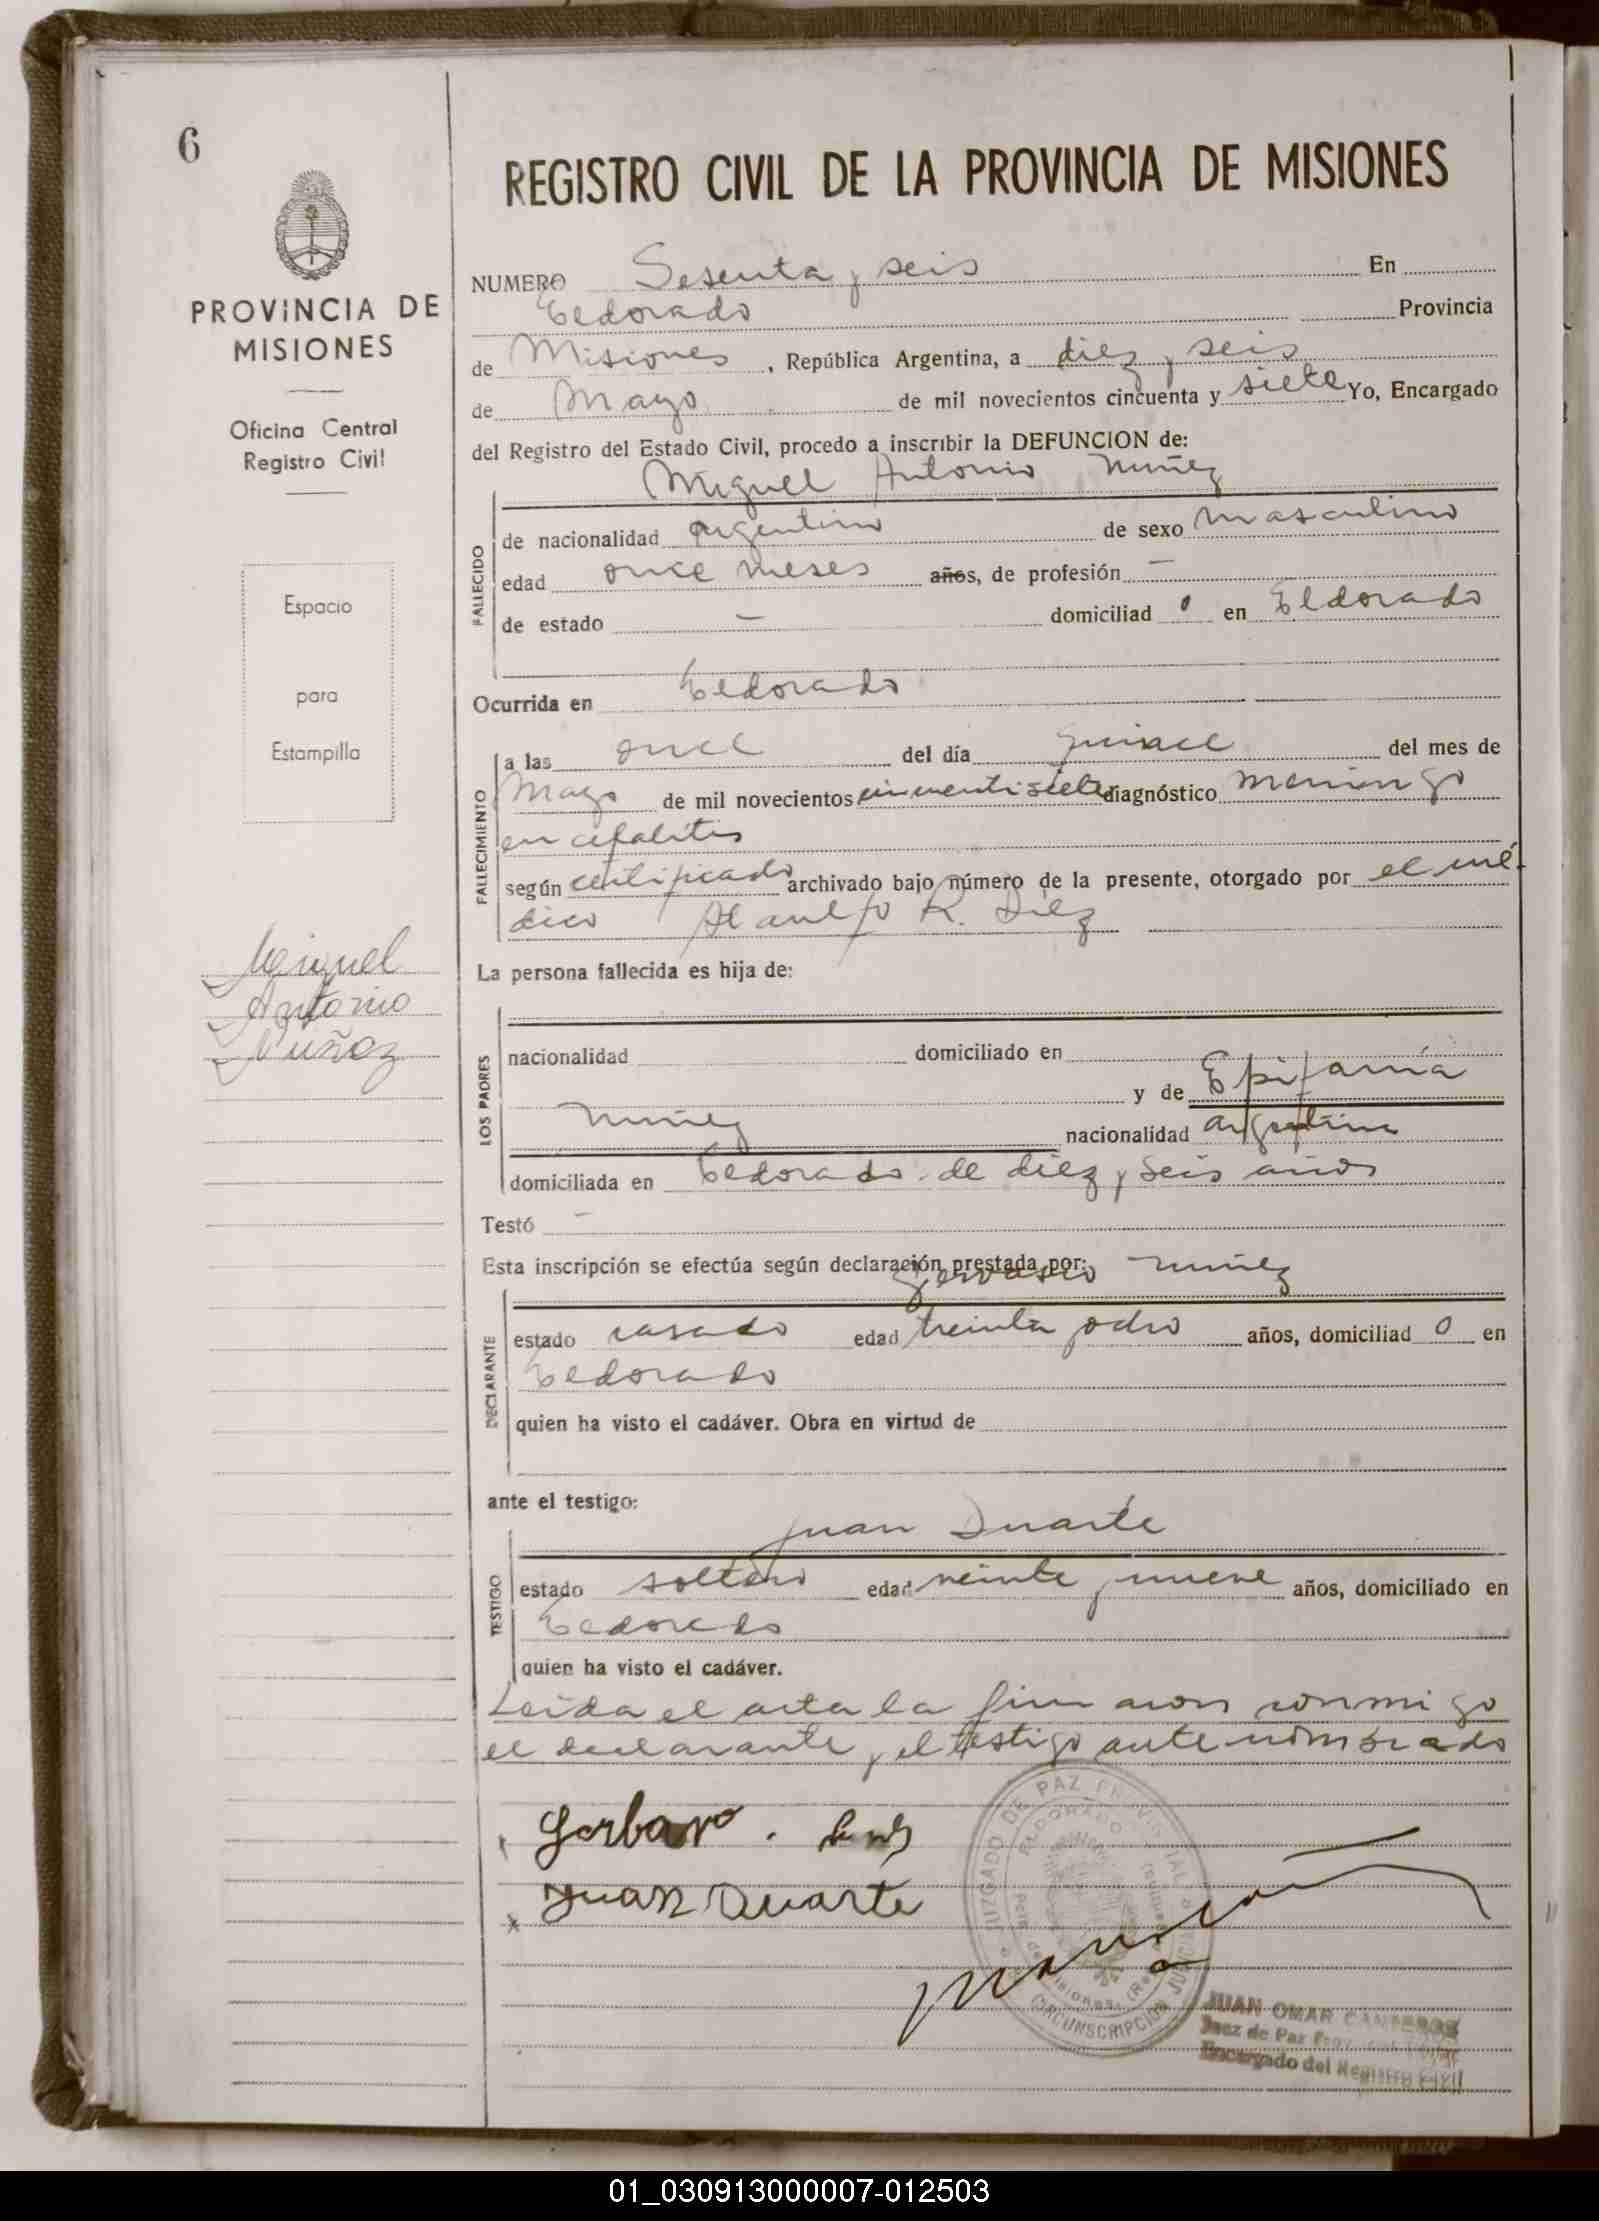 6
REGISTRO CIVIL DE LA PROVINCIA DE MISIONES
PROVINCIA DE
MISIONES
Oficina Central
Registro Civil
Espacio
para
Estampilla
Miguel
Antonio
Nuñez
NUMERO Sesenta y seis En
Eldorado Provincia
de Misiones, República Argentina, a diez y seis
de Mayo de mil novecientos cincuenta y siete Yo, Encargado
del Registro del Estado Civil, procedo a inscribir la DEFUNCION de:
Miguel Antonio Nuñez
FALLECIDO
de nacionalidad argentino de sexo masculino
edad once meses años, de profesión —
de estado — domiciliad o en Eldorado
Ocurrida en Eldorado
FALLECIMIENTO
a las once del día quince del mes de
Mayo de mil novecientos cincuentisiete diagnóstico meningo
encefalitis
según certificado archivado bajo número de la presente, otorgado por el mé-
dico R. Diez
La persona fallecida es hija de:
LOS PADRES
nacionalidad domiciliado en
y de Epifania
Nuñez nacionalidad argentina
domiciliada en Eldorado de diez y seis años
Testó —
Esta inscripción se efectúa según declaración prestada por:
Gervasio Nuñez
DECLARANTE
estado casado edad treinta y ocho años, domiciliad o en
Eldorado
quien ha visto el cadáver. Obra en virtud de
ante el testigo:
Juan Duarte
TESTIGO
estado soltero edad veinte y nueve años, domiciliado en
Eldorado
quien ha visto el cadáver.
Leida el acta la firmaron conmigo
el declarante y el testigo antenombrado
Juan Duarte
JUZGADO DE PAZ PROVINCIAL
ELDORADO
CIRCUNSCRIPCION JUDICIAL
JUAN OMAR CANTEROS
Juez de Paz
Encargado del Registro Civil
01_030913000007-012503